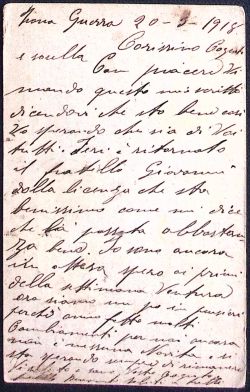 Zona Guerra 20-5-1918
Carissimo
e sorella
Con piacere vi
mando questi miei scritti
dicendovi che sto bene così
sperando che sia di Voi
tutti. Ieri è ritornato
il fratello Giovanni
dalla licenza che sta
benissimo come mi dice
che l'à passata abbastan
za bene. Io sono ancora
in attesa spero ai primi
della settimana Ventura
ora siamo un po in pensieri
perchè anno fatto molti
Cambiamenti per noi ancora
non c'è nessuna Novità e si
sta sperando di rimanere